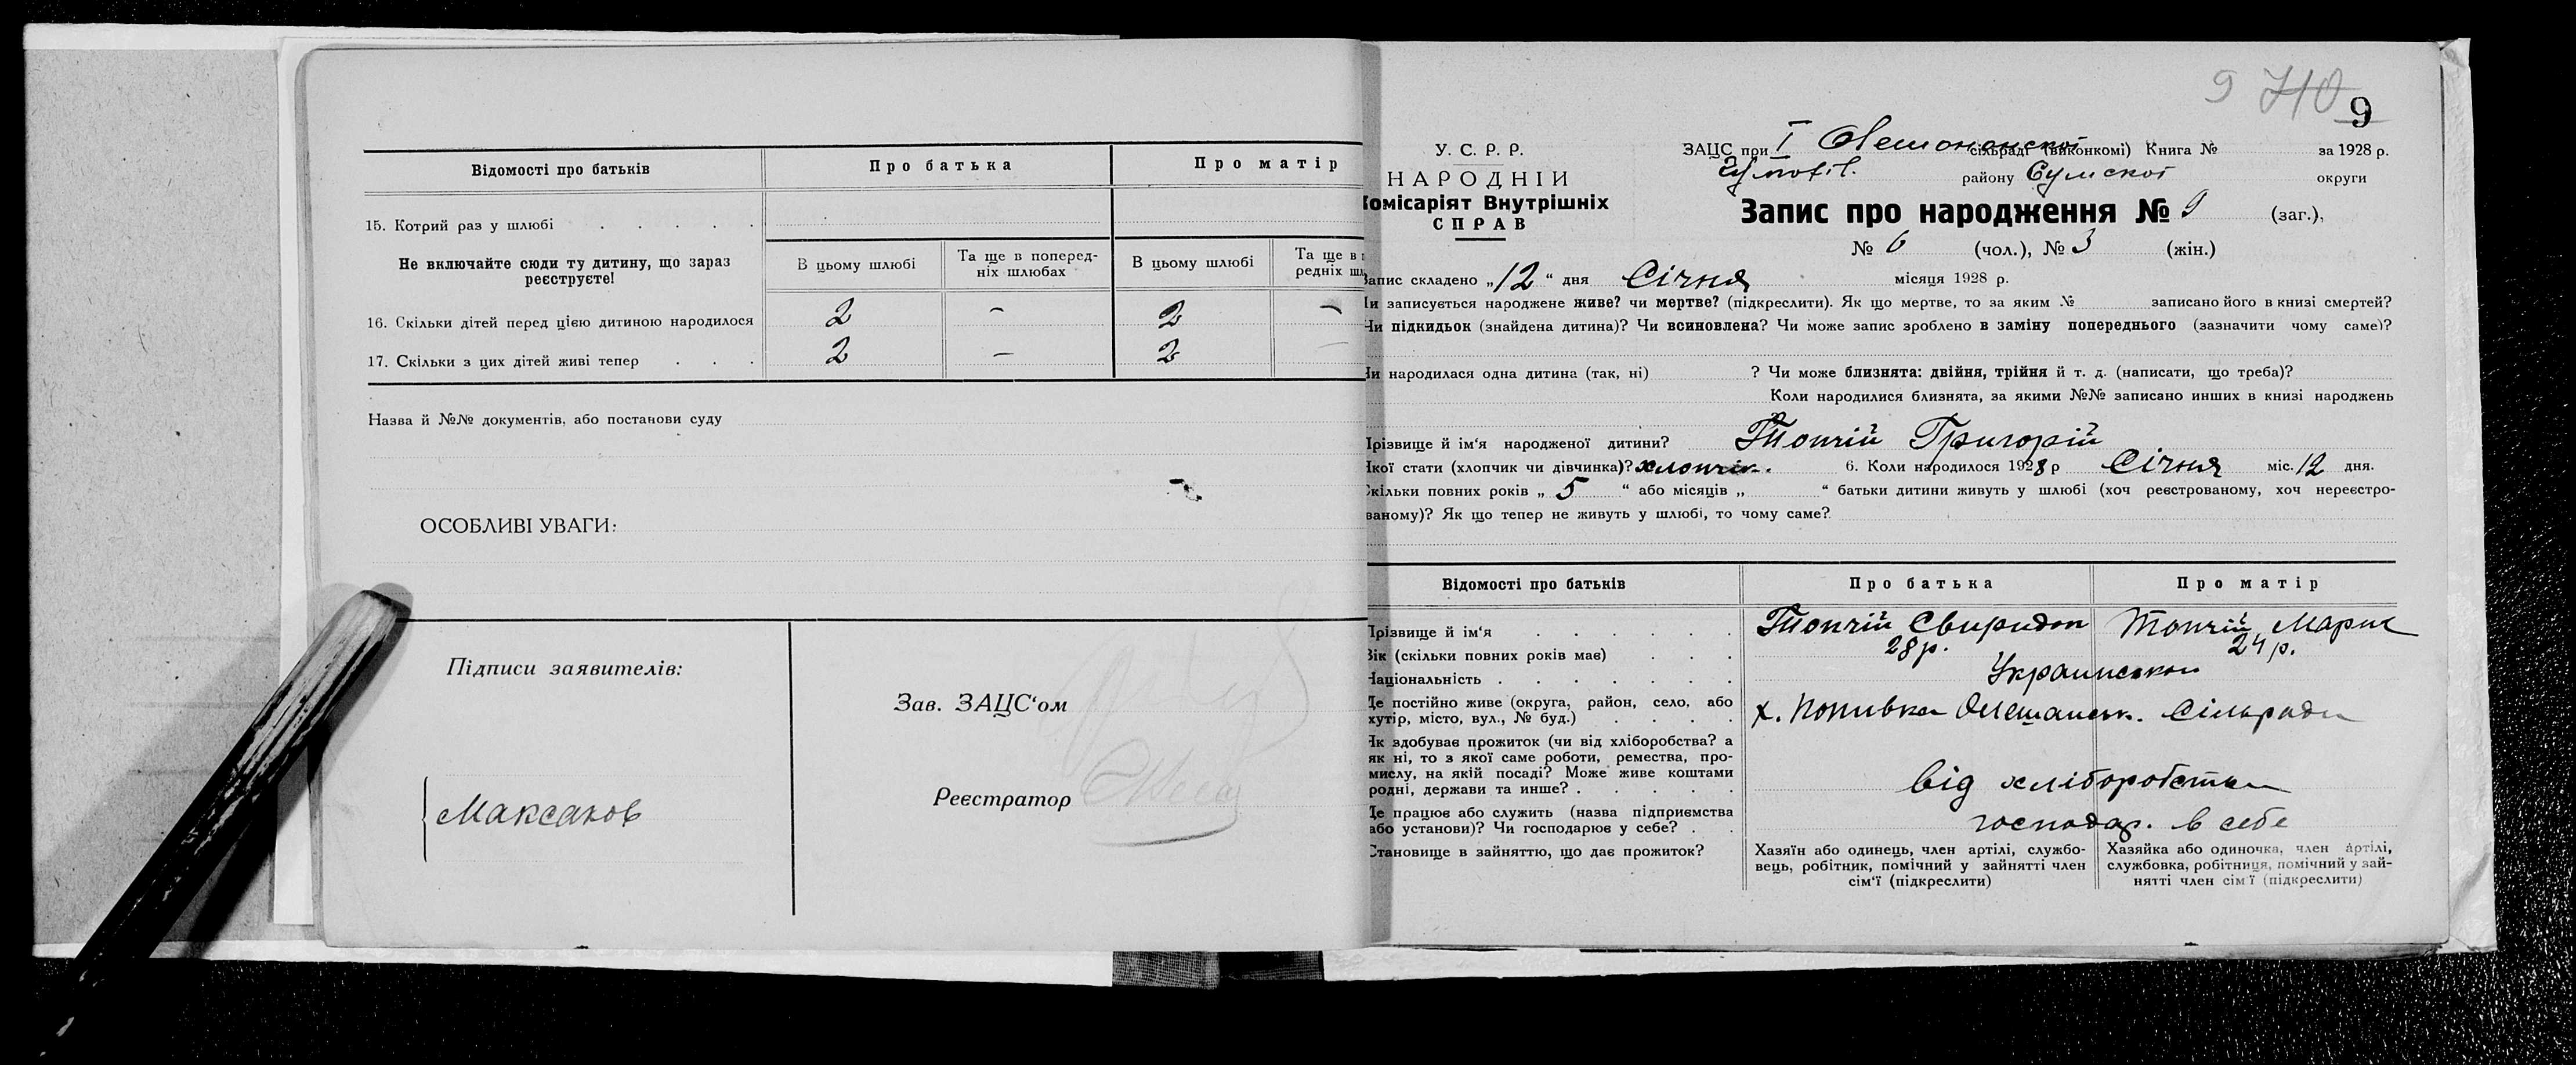 Відомості про батьків
Про батька
Про матір
15. Котрий раз у шлюбі . . . . .
Не включайте сюди ту дитину, що зараз
реєструєте!
В цьому шлюбі
Та ще в поперед-
ніх шлюбах
В цьому шлюбі
Та ще в
редніх
16. Скільки дітей перед цією дитиною народилося 2 – 2 –
17. Скільки з цих дітей живі тепер . . . 2 – 2 –
Назва й №№ документів, або постанови суду
ОСОБЛИВІ УВАГИ:
Підписи заявителів:
Максаков
Зав. ЗАЦС'ом
Реєстратор
9 710 9
У. С. Р. Р.
НАРОДНІЙ
Комісаріят Внутрішніх
СПРАВ
ЗАЦС при І сільраді (виконкомі) Книга № за 1928 р.
району Сумскої округи
Запис про народження № 9 (заг.),
№ 6 (чол.), № 3 (жін.)
Запис складено „12“ дня Січня місяця 1928 р.
Чи записується народжене живе? чи мертве? (підкреслити). Як що мертве, то за яким № записано його в книзі смертей?
Чи підкидьок (знайдена дитина)? Чи всиновлена? Чи може запис зроблено в заміну попереднього (зазначити чому саме)?
Чи народилася одна дитина (так, ні) ? Чи може близнята: двійня, трійня й т. д. (написати, що треба)?
Коли народилися близнята, за якими №№ записано инших в книзі народжень
Прізвище й ім'я народженої дитини? Топчій Григорій
Якої стати (хлопчик чи дівчинка)? хлопчик. 6. Коли народилося 1928 р Січня міс. 12 дня.
Скільки повних років „ 5 “ або місяців „ “ батьки дитини живуть у шлюбі (хоч реєстрованому, хоч нереєстро-
ваному)? Як що тепер не живуть у шлюбі, то чому саме?
Відомості про батьків
Про батька
Про матір
Прізвище й ім'я . . . . . . Топчій Свиридон Топчій Мария
Вік (скільки повних років має) . . . 28 р. 24 р.
Національність . . . . . . .
Де постійно живе (округа, район, село, або
хутір, місто, вул., № буд.) . . . . х. Попивка Олешанськ. Сільради
Як здобуває прожиток (чи від хліборобства? а
як ні, то з якої саме роботи, ремества, про-
мислу, на якій посаді? Може живе коштами
родні, держави та инше? . . . . . від хліборобства
Де працює або служить (назва підприємства
або установи)? Чи господарює у себе? . . господар. в себе
Становище в зайняттю, що дає прожиток?
Хазяїн або одинець, член артілі, службо-
вець, робітник, помічний у зайнятті член
сім'ї (підкреслити)
Хазяйка або одиночка, член артілі,
службовка, робітниця, помічний у зай-
нятті член сім'ї (підкреслити)